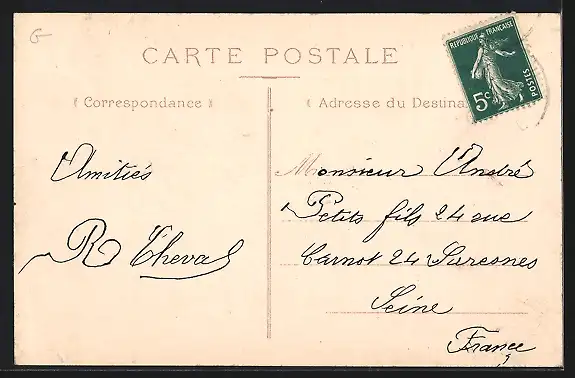 G
CARTE POSTALE
Correspondance
Adresse du Destina
RÉPUBLIQUE FRANÇAISE
5c
POSTES
Amitiés
R Cheval
Monsieur André
Petits fils 24 rue
Carnot 24 Suresnes
Seine
France